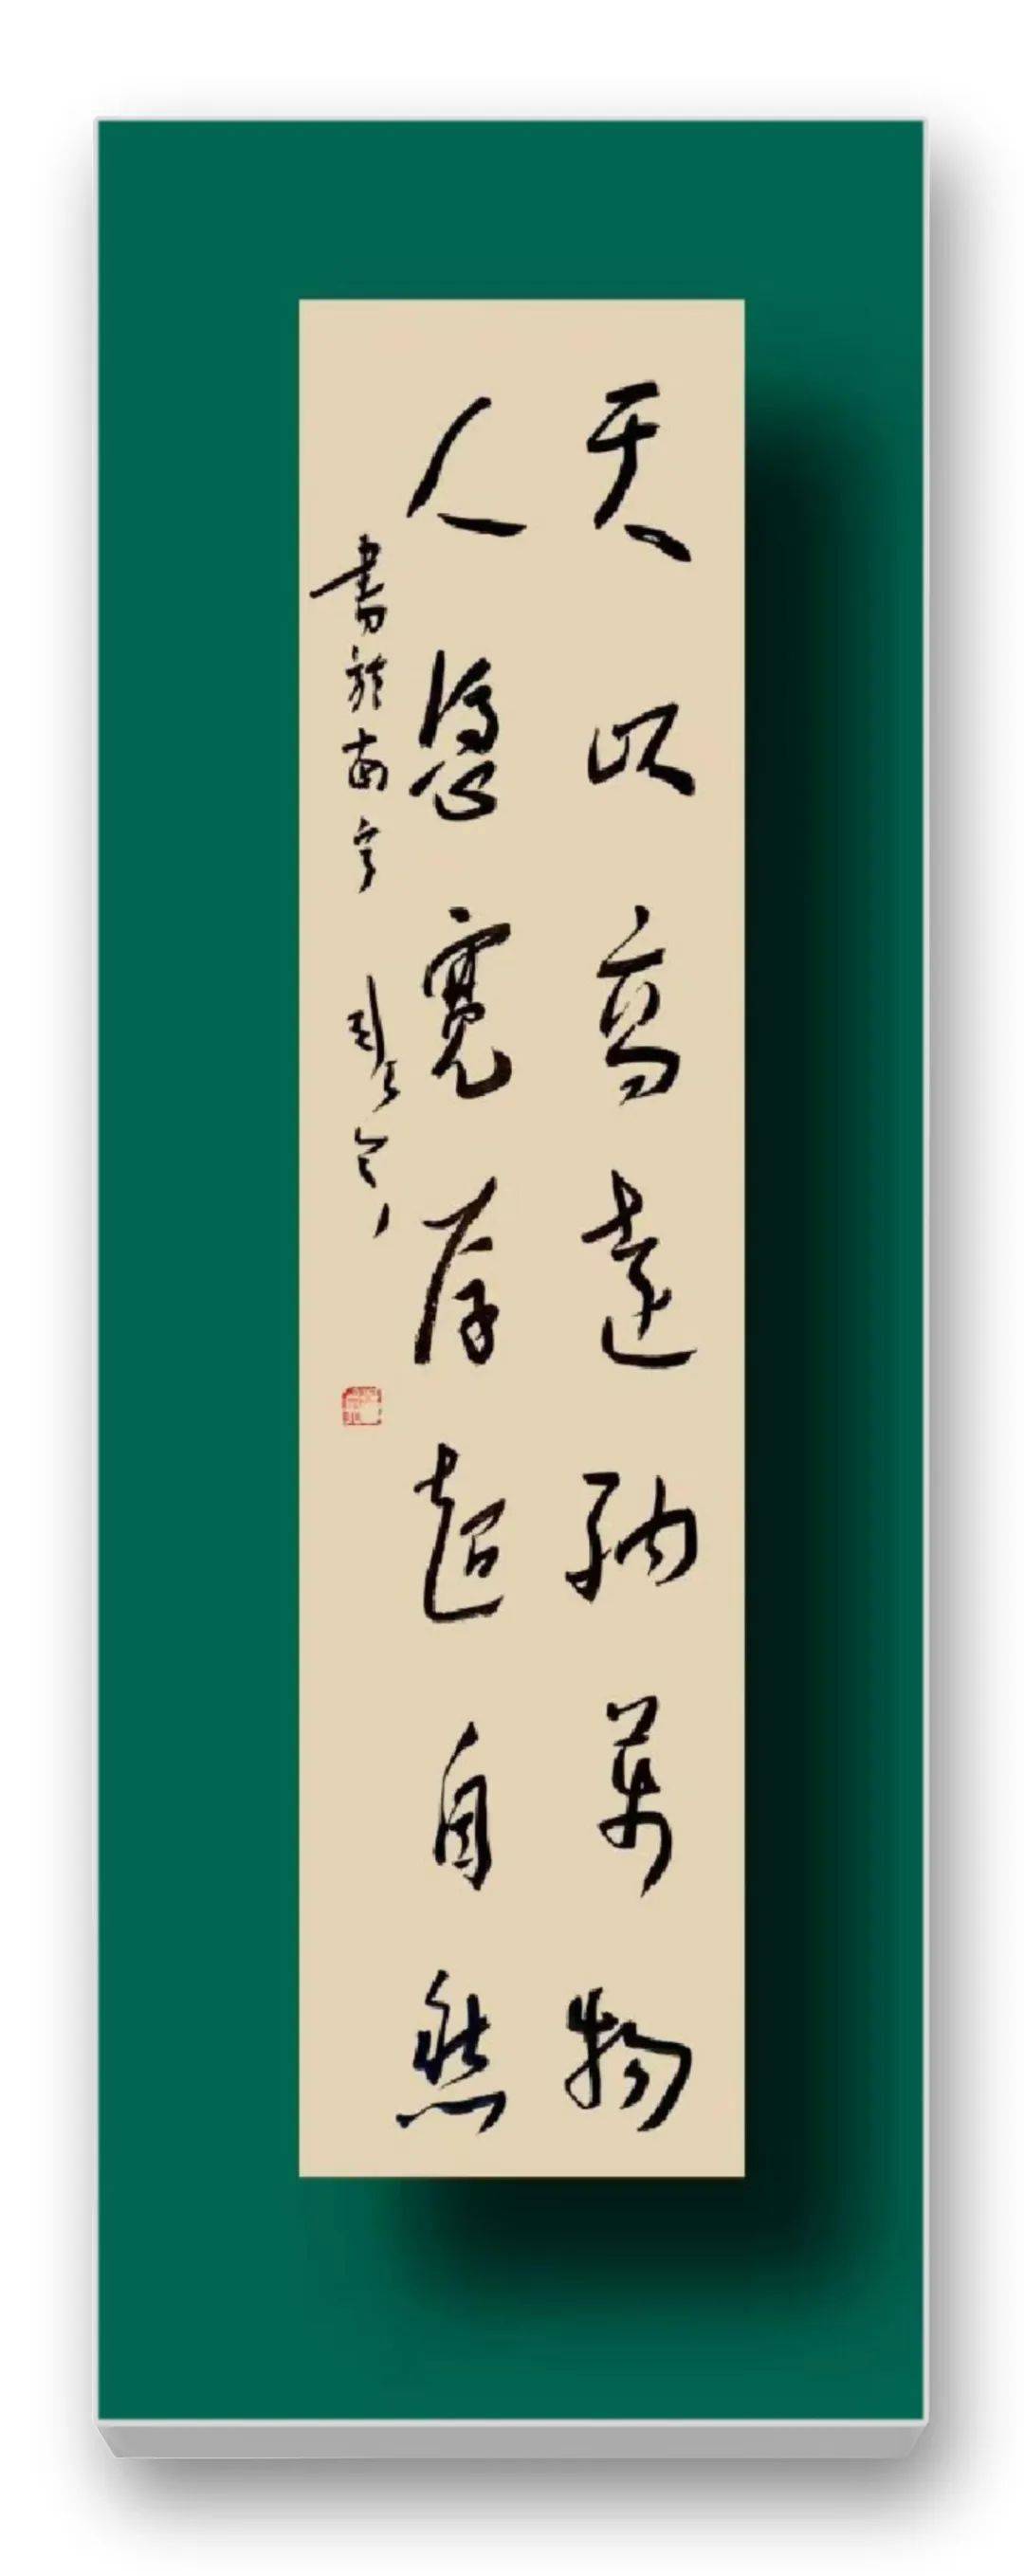 天以高遠納萬物
人憑寬厚超自然
書於南寧